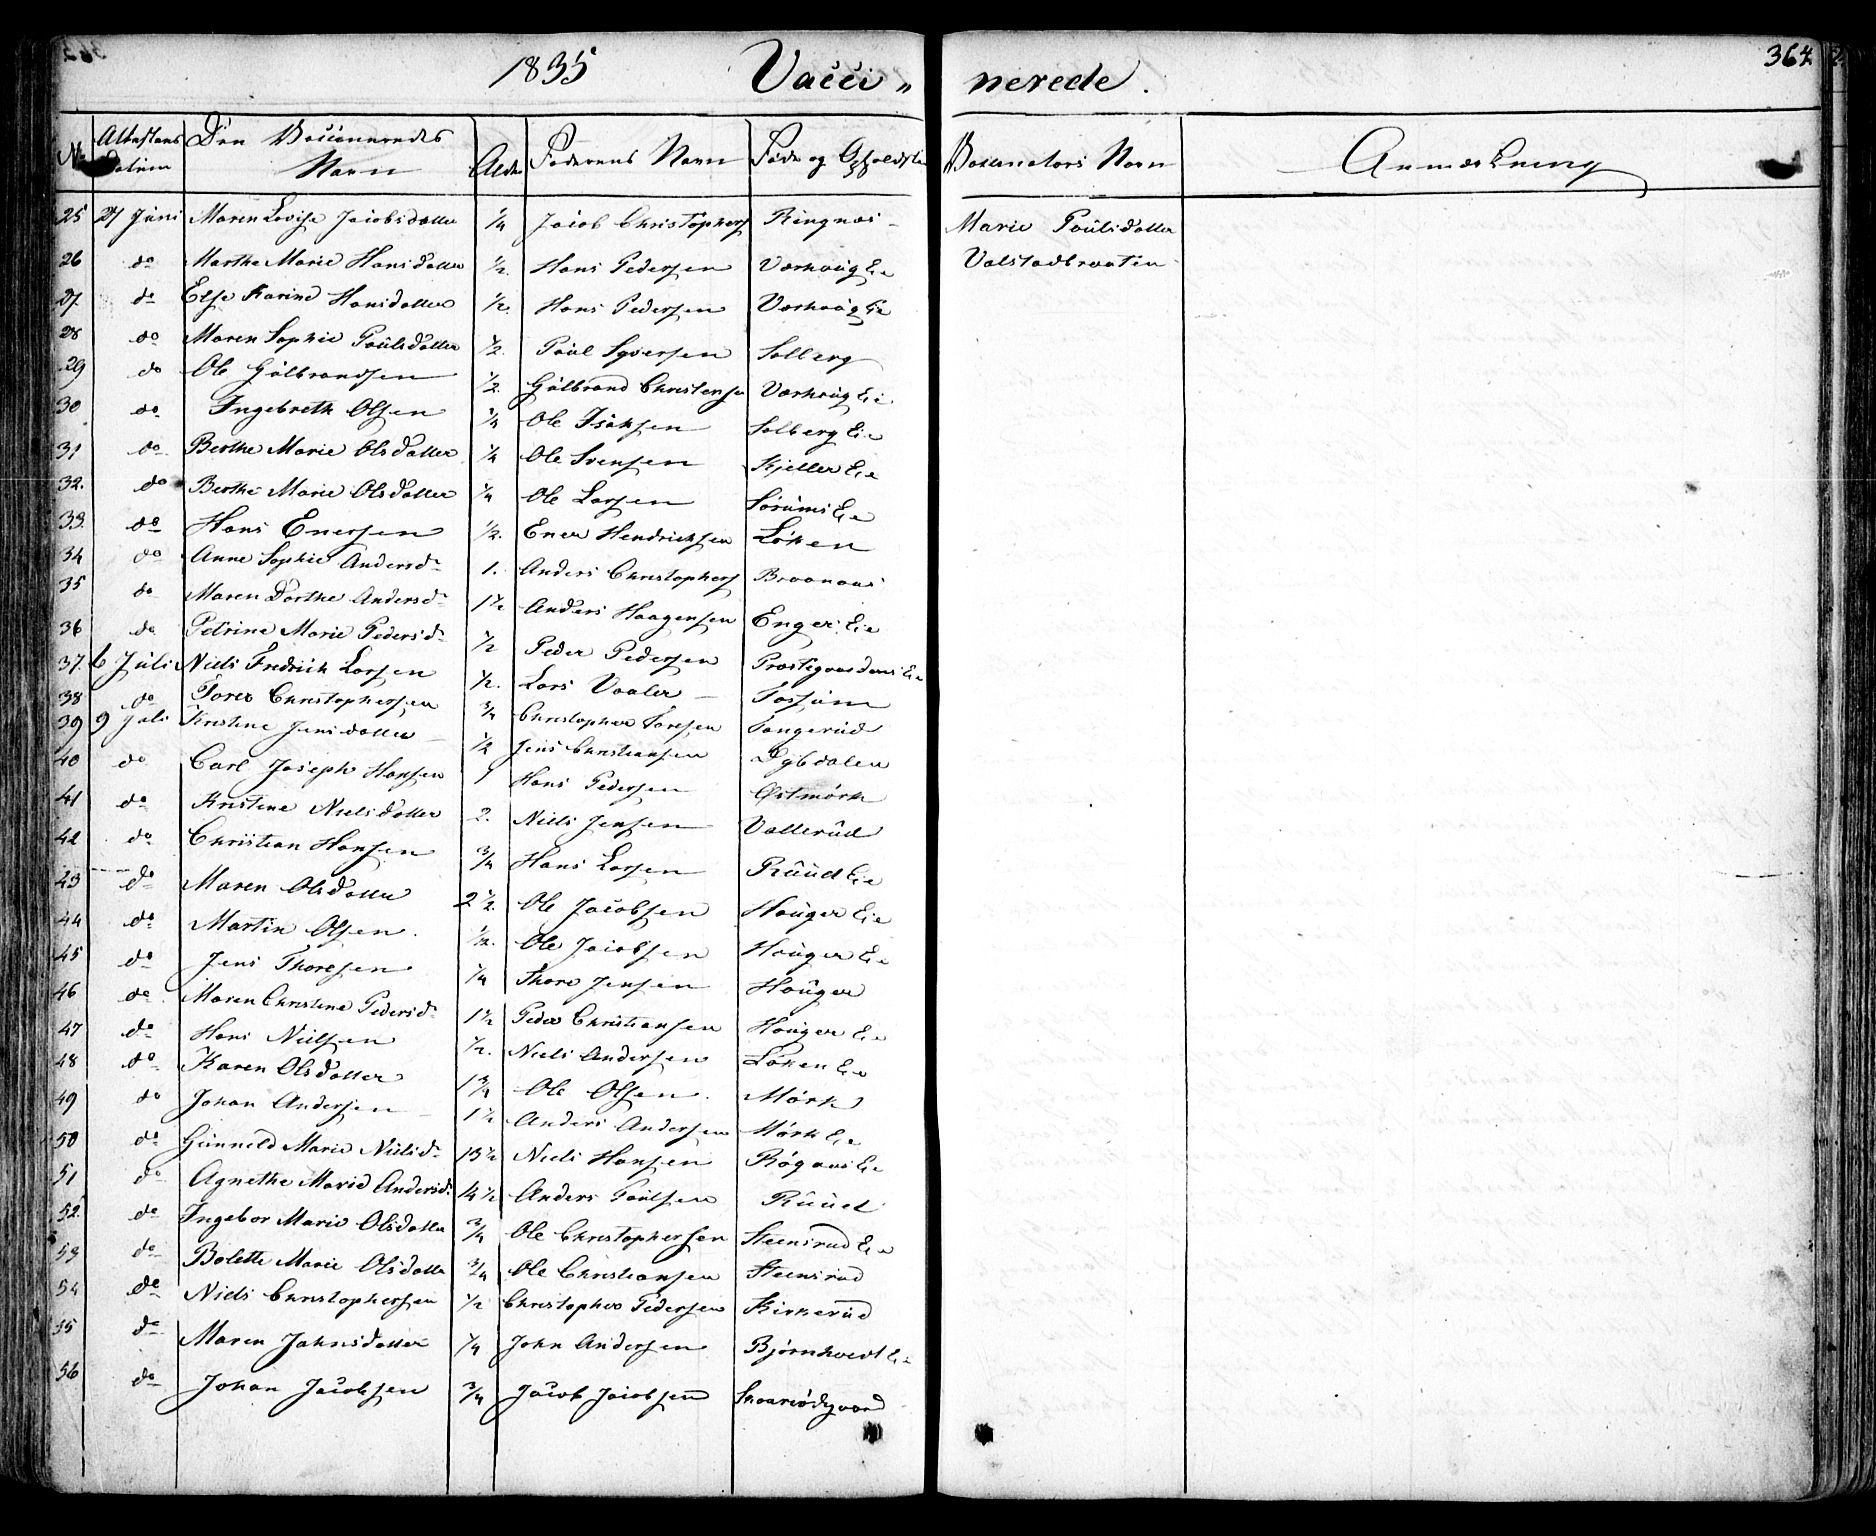 1835 Vacci„ nerede. 364
No Attestens Datum Den Vaccineredes Navn Alder Faderens Navn Føde og Opholdsted Vaccinators Navn Anmærkning
25 27 Juni Maren Lovise Jacobsdatter 1/4 Jacob Christophers Ringnæs Marie Poulsdatter
26 do Marthe Marie Hansdatter 1/2. Hans Pedersen Værhaüg Eie Valstadbraaten
27. do Else Karine Hansdatter 1/2. Hans Pedersen Værhaüg Eie
28 do Maren Sophie Poülsdatter 1/2. Poül Syversen Solberg
29 do Ole Gülbrandsen 1/2. Gülbrand Christensen Værhaüg Eie
30 do Ingebreth Olsen 1/4 Ole Isaksen Solberg Eie
31 do Berthe Marie Olsdatter 1/4 Ole Svensen Kjeller Eie
32. do Berthe Marie Olsdatter 1/4 Ole Larsen Sörums Eie
33. do Hans Enersen 1/2. Ener Hendrichsen Löken
34 do Anne Sophie Andersdr 1. Anders Christophers Braanaas
35 do Maren Dorthe Andersdr 1 1/2 Anders Haagensen Enger Eie
36 do Petrine Marie Pedersdr 1/2 Peder Pedersen Præstegaardens Eie
37. 6 Jüli Niels Fredrich Larsen 1/2. Lars Vaaler Fossüm
38 do Tores Christophersen 3/4 Christopher Toresen Tangerüd
39 9 Jüli Kristine Jensdatter 1/2 Jens Christiansen Dybdalen
40 do Carl Joseph Hansen 1 Hans Pedersen Østmörk
41 do Kristine Nielsdatter 2. Niels Jensen Vallerüd
42 do Christian Hansen 3/4 Hans Larsen Rüüd Eie
23 do Maren Olsdatter 2 1/2. Ole Jacobsen Haüger Eie
44 do Martin Olsen. 1/2. Ole Jacobsen Haüger Eie
45 do Jens Thoresen 1/4 Thore Jensen Haüger
46 do Maren Christine Pedersdr 1 1/2 Peder Christiansen Haüger Eie
47 do Hans Nielsen 1/2. Niels Andersen Löken Eie
48 do Karen Olsdatter 1 3/4 Ole Olsen. Mörk
49 do Johan Andersen 1 1/2 Anders Andersen Mörk Eie
50 do Günneld Marie Nielsdr 13 1/2 Niels Hansen Rögaas Eie
51 do Agnethe Marie Andersdr 14 1/2 Anders Poülsen Rüüd
52. do Ingebor Marie Olsdatter 3/4 Ole Christophersen Steensrud Eie
53 do Bolette Marie Olsdatter 3/4 Ole Christiansen Steensrud
54 do Niels Christophersen 1/2 Christopher Pedersen Kirkerüd
55 do Maren Johnsdatter 1/4 John Andersen Bjørnhvedt Eie
56 do Johan Jacobsen 3/4 Jacob Jacobsen